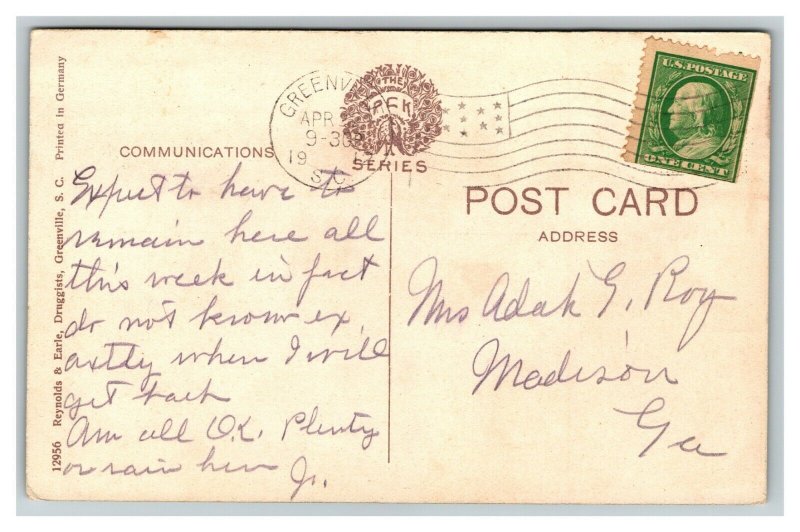 12956 Reynolds & Earle, Druggists, Greenville, S. C. Printed in Germany
COMMUNICATIONS
GREENVILLE
APR
9-30
19
S.C.
THE
PCK
SERIES
U.S. POSTAGE
ONE CENT
POST CARD
ADDRESS
Expect to have to
remain here all
this week in fact
do not know ex
actly when I will
get back
Am all O.K. Plenty
or rain here Jr.
Mrs Adah G. Roy
Madison
Ga